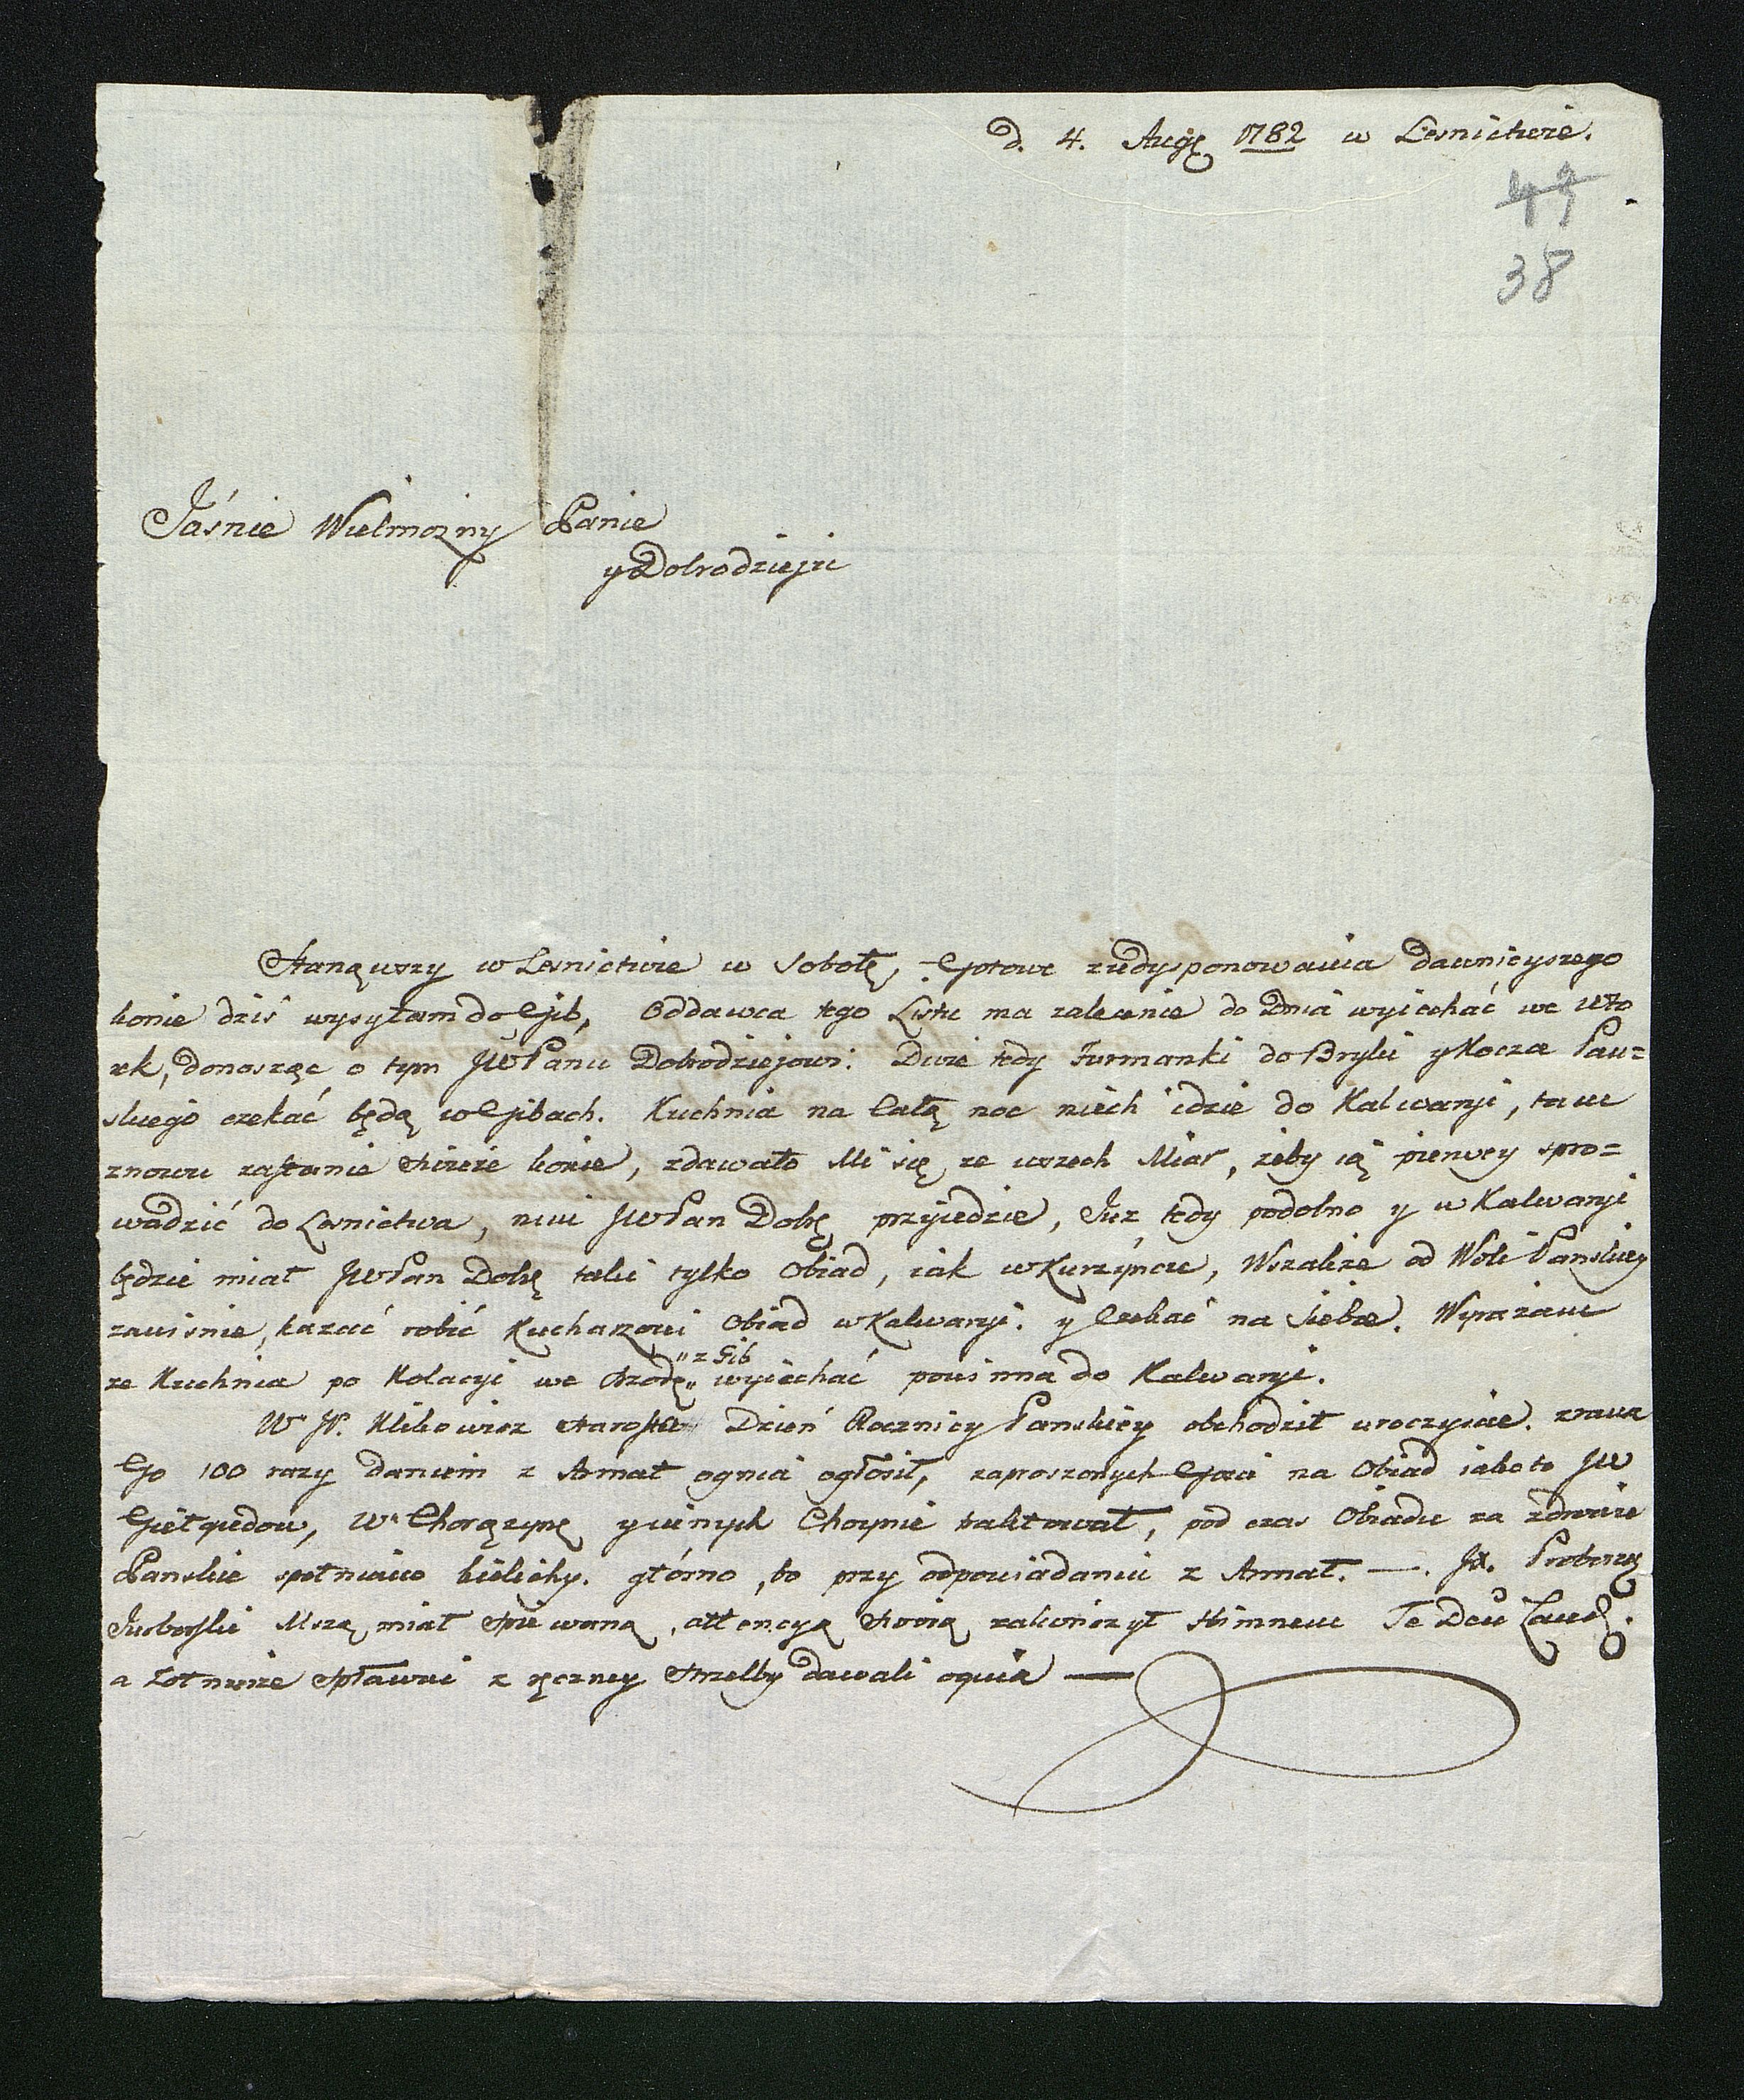 d. 4. Augę 1782 w Lesnictwie.
49
38
Jaśnie Wielmożny Panie
y Dobrodzieju
Stanąwszy w Lesnictwie w Sobotę, Gotowe zudysponowania dawnieyszego
konie dziś wysyłam do Gib, Oddawca tego Listu ma zalecenie do Dnia wyiechać we Wto
rek, donosząc o tym JWPanu Dobrodziejowi: Dwie tedy Furmanki do Bryki y Kocza Pan=
skiego czekać będą w Gibach. Kuchnia na Całą noc niech idzie do Kalwaryi, tam
znowu zastanie swieże konie, zdawało Mi się ze wszech Miar, żeby ią pierwey spro=
wadzić do Lesnictwa, nim JWPan Dobę przyiedzie, Już tedy podobno y w Kalwaryi
będzie miał JWPan Dobę taki tylko Obiad, iak w Kurzyńcu, Wszakże od Woli Panskiey
zawisnie, kazać robić Kucharzowi Obiad w Kalwaryi. y Czekać na Siebie. Wyrażam
"z Gib
ze Kuchnia po Kolacyi we Srzodę" wyiechać powinna do Kalwaryi.
W JP. Klikowicz Starosta Dzień Rocznicy Panskiey obchodził uroczyscie. zrana
Go 100 razy daniem z Armat ognia ogłosił, zaproszonych Gosci na Obiad iako to JW
Giełgudow, Wą Chorążynę y innych Choynie traktował, pod czas Obiadu za zdrowie
Panskie spełniano kielichy. głośno, bo przy odpowiadaniu z Armat. —. JX. Proboszcz
Mszą miał Spiewaną, attencyą Swoią zakończył Himnem Te Deu Laud.
a Zołnierze z ręczney Strzelby dawali ognia —